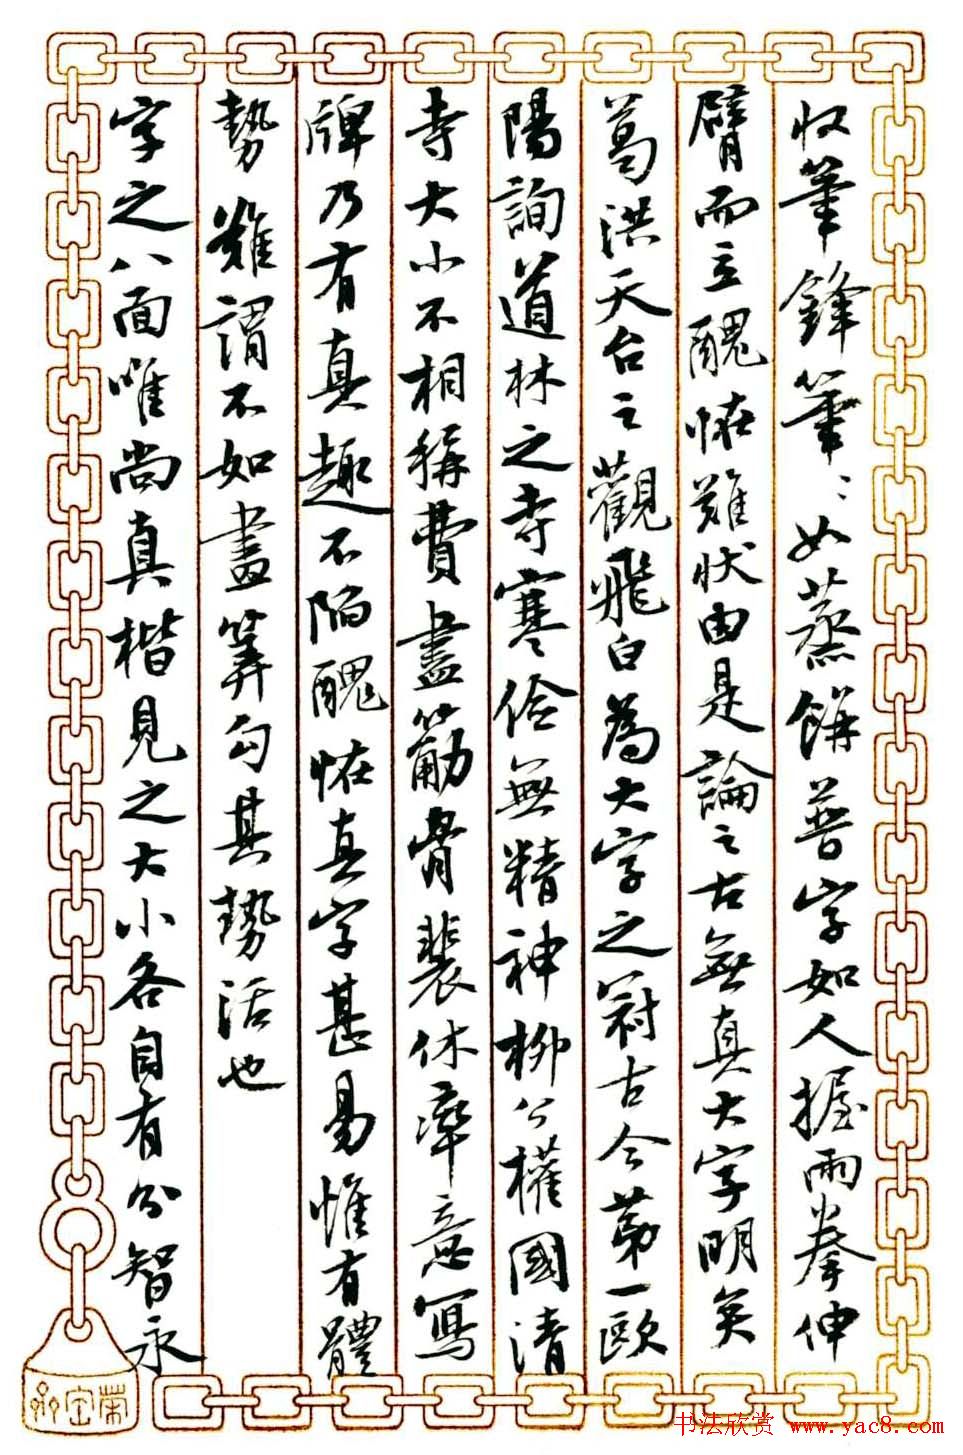 収筆鋒筆〻如蒸餅普字如人握兩拳伸
臂而立醜恠難狀由是論之古無真大字明矣
葛洪天台之觀飛白為大字之冠古今第一歐
陽詢道林之寺寒儉無精神柳公權國清
寺大小不相稱費盡筋骨裴休率意寫
牌乃有真趣不陷醜恠真字甚易惟有體
勢難謂不如畫算勻其勢活也
字之八面唯尚真楷見之大小各自有分智永
书法欣赏 www.yac8.com